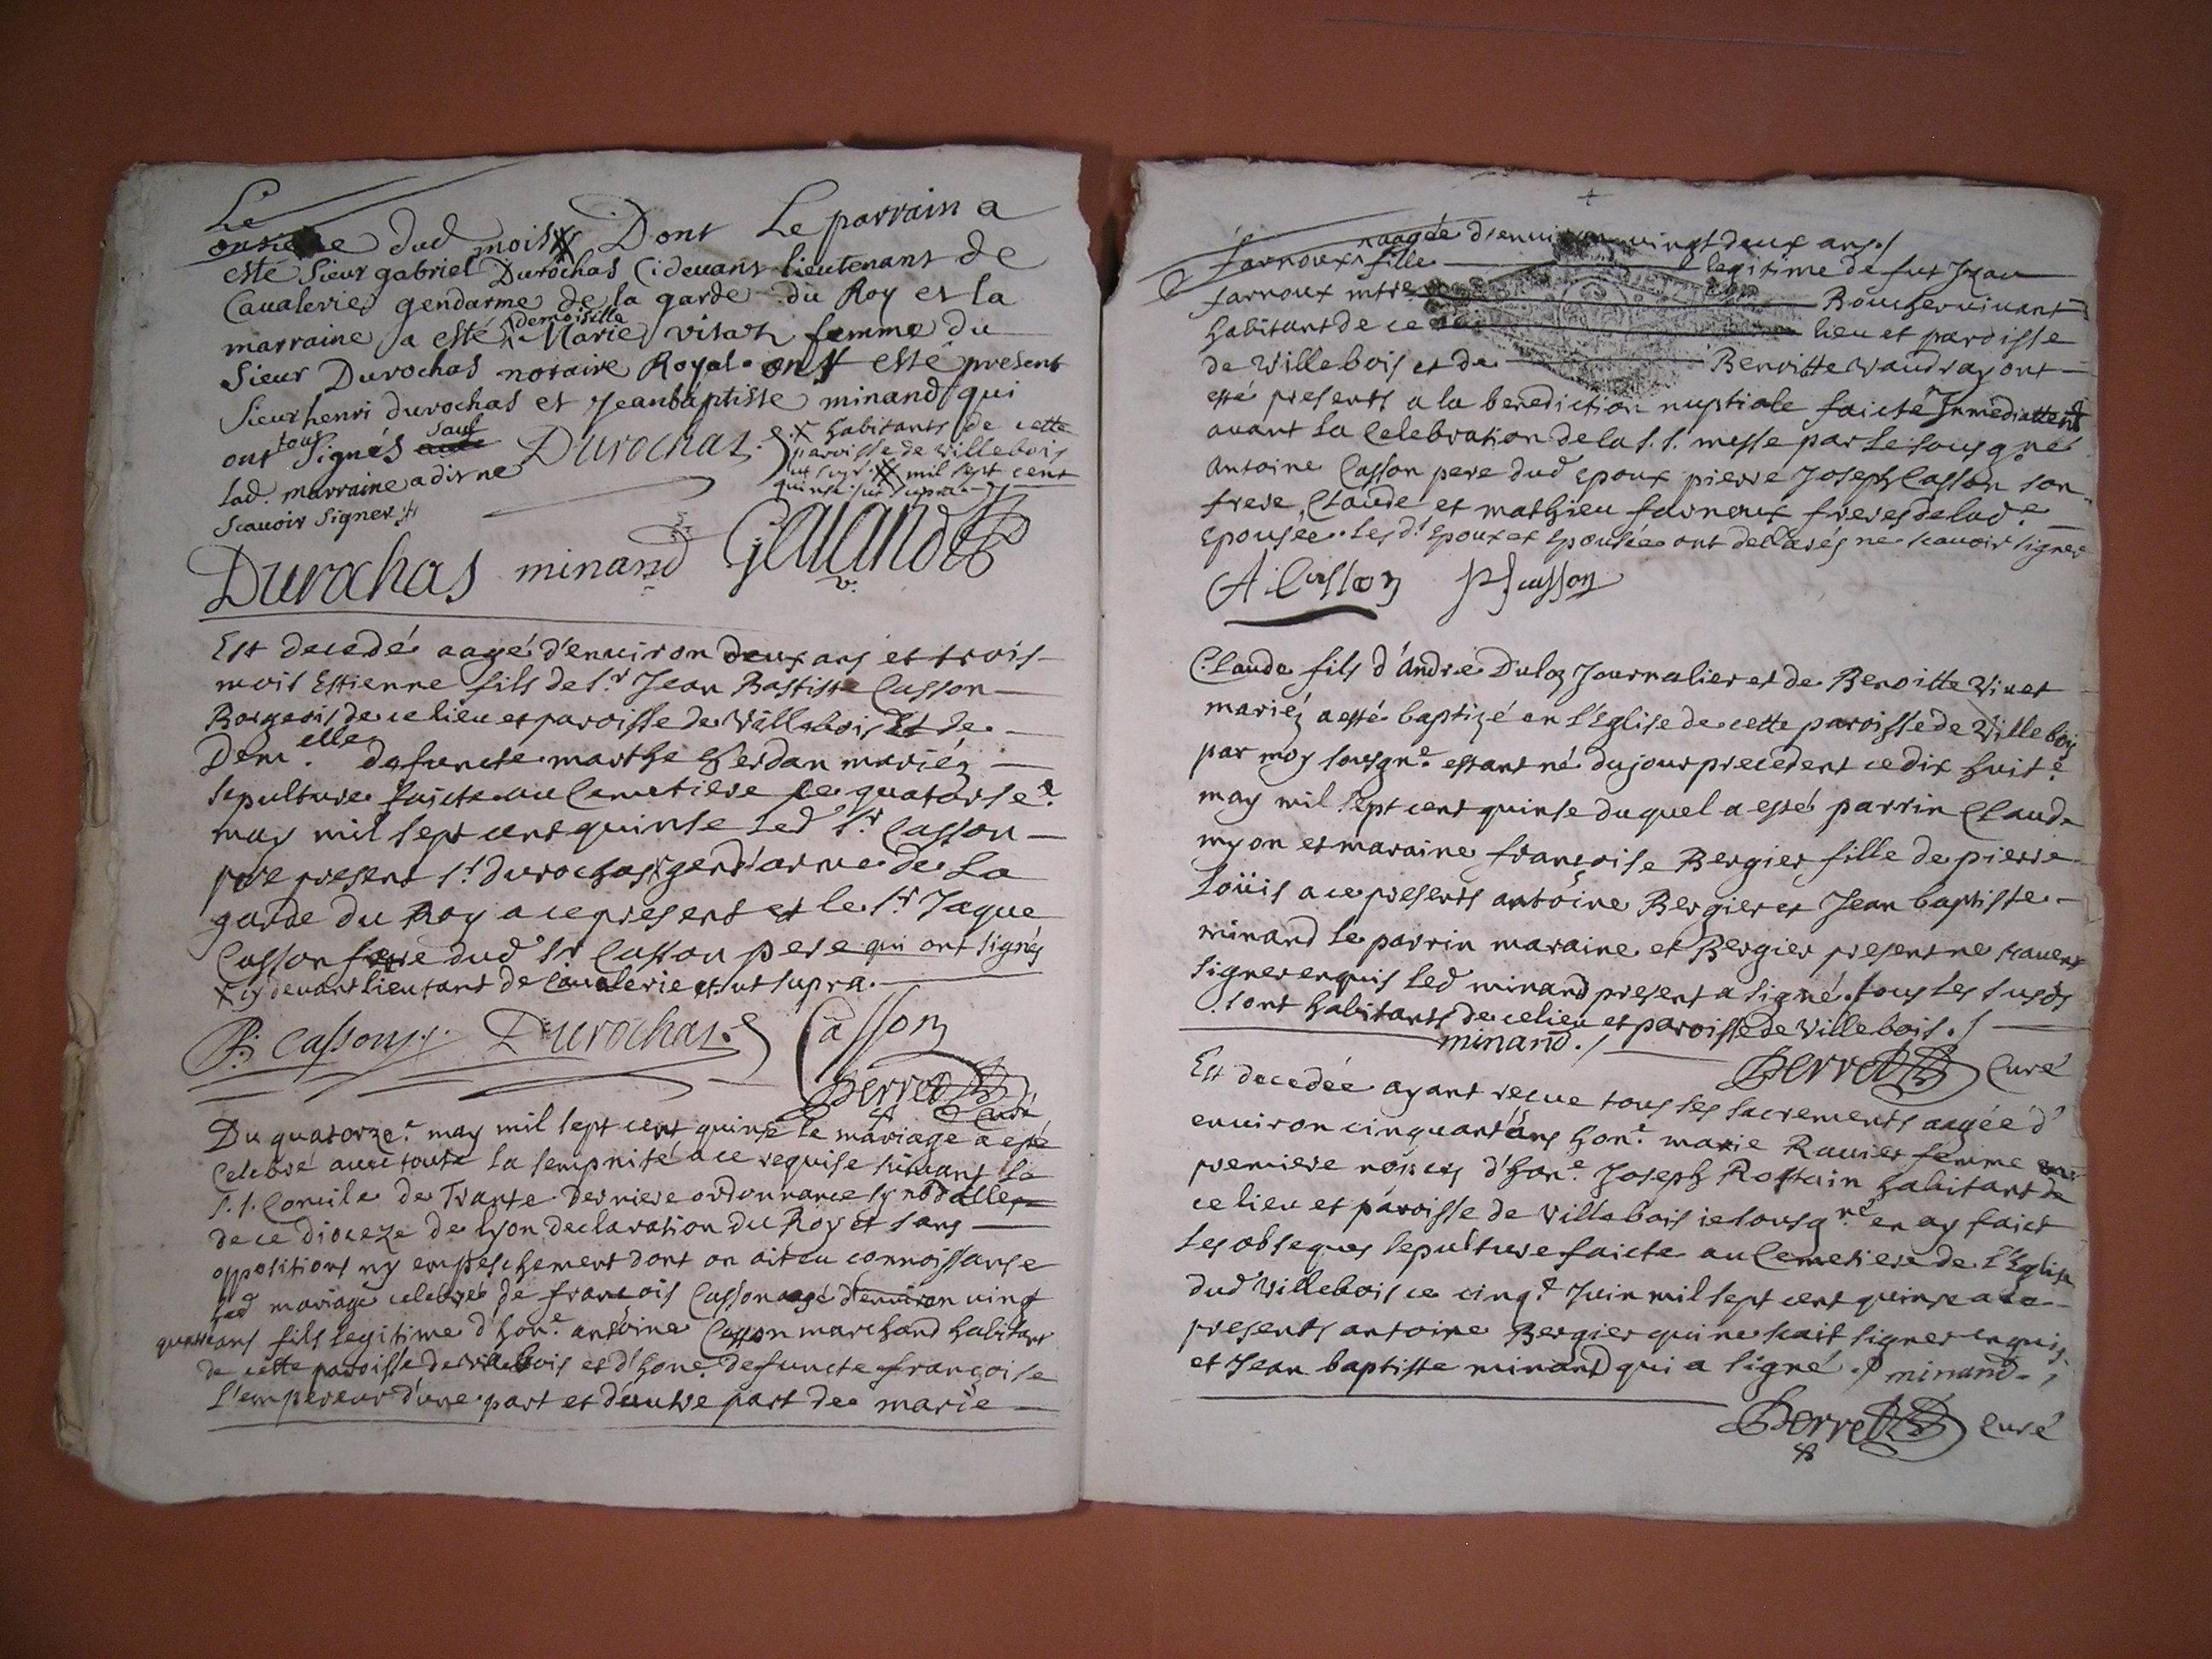 Le
onsieme dud mois Dont Le parrain a
esté sieur gabriel Durochas Cideuant lieutenant de
Caualerie gendarme de la garde du Roy et la
marraine a esté demoiselle Marie femme du
Sieur Durochas notaire Royal ont esté present
Sieur henri durochas et Jeanbaptiste minand qui
ont tous Signés sauf
lad. marraine a dis ne
scauoir signer
Durochas.
habitants de cette
paroisse de Villebois
mil sept cent
quinse supra
Durochas minand Galand
Est decedé aagé d'enuiron deux ans et trois
mois Estienne fils de Sr. Jean Bastiste Casson
Borgeois de ce lieu et paroisse de Villebois Et de
Dem.elle defuncte marthe mariéz
sepulture faicte au Cemetiere le quatorse.e
may mil sept cent quinse Led Sr. Casson
pere present Sr. durochas gend'arme de La
garde du Roy a ce present et le Sr. Jaque
Casson frere dud Sr. Casson pere qui ont signés
cy deuant lieutant de Caualerie et ut supra.
Casson Durochas. Casson
Perret Curé
Du quatorze.e may mil sept cent quinse le mariage a esté
Celebré auec toute la a ce requise suiuant le
S. S. Concile de Trante derniere ordonnance synodalle
de ce dioceze de lyon declaration du Roy et sans
oppositions ny empeschement dont on ait eu connoissanse
Led mariage celebré de françois Casson aagé d'enuiron uingt
quattre ans fils legitime d'hon.e antoine Casson marchand habitant
de cette paroisse de Villebois et d'hone. defuncte françoise
L'empereur d'une part et d'autre part de marie
farnoux aagée d'enuiron uingt deux ans./
fille legitime de fut Jean
farnoux mtre Boucher uiuant
habitant de ce lieu et paroisse
de Villebois et de Benoitte Vaudray ont
esté presents a la benediction nuptiale faicte Immediattemt
auant La Celebration de la S. S. messe par Le sousgné
Antoine Casson pere dud epoux pierre Joseph Casson son
frere, Claude et mathieu farnoux freres de lad.e
Epousée. Les d. Epoux et Epousée ont declarés ne scauoir signer
A Casson PJ casson
Claude fils d'André Duloz Journalier et de Benoitte Viuet
mariéz a esté baptizé en l'Eglise de cette paroisse de Villebois
par moy sousgn.é estant né du jour precedent ce dix huit.e
may mil sept cent quinse duquel a esté parrin Claude
myon et maraine françoise Bergier fille de pierre
Loüis a ce presents antoine Bergier et Jean baptiste
minand le parrin maraine et Bergier present ne scauent
signer enquis led minand present a signé. / tous les susds
sont habitants de ce lieu et paroisse de Villebois. /
minand. / Perret Curé
Est decedée ayant reçue tous les sacrements aagée d'
enuiron cinquant'ans hon.e marie Rauier femme en
premiere nosces d'hon.e Joseph Rostain habitant de
ce lieu et paroisse de Villebois ie sousgné en ay faict
Les obseques sepulture faicte au Cemetiere de l'Eglise
dud Villebois ce cinq.e Juin mil sept cent quinse a ce
presents antoine Bergier qui ne scait signer enquis
et Jean baptiste minand qui a signé. / minand
Perret Curé